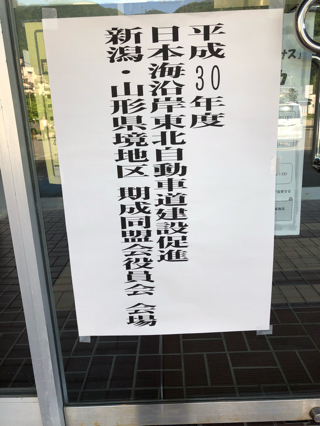 平成30年度
日本海沿岸東北自動車道建設促進
新潟・山形県境地区 期成同盟会役員会 会場